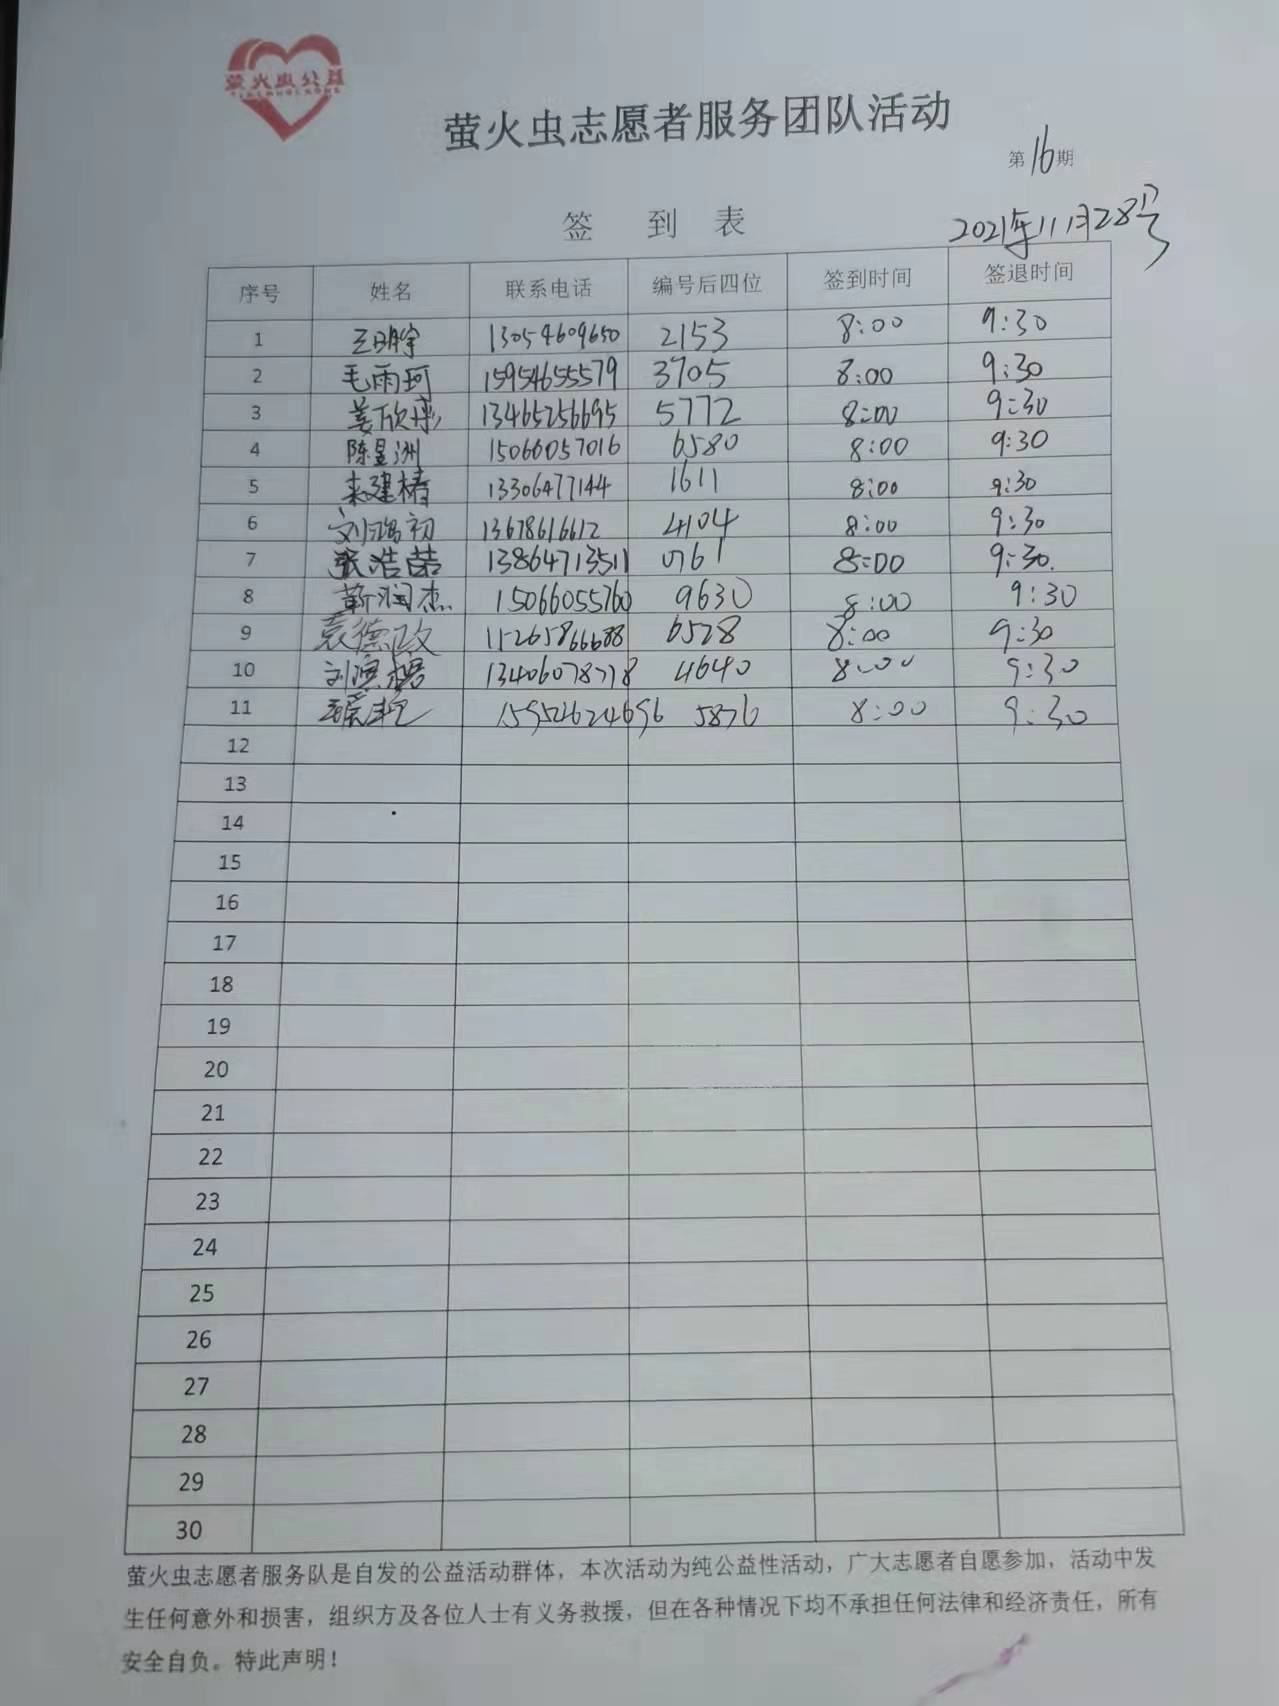 萤火虫公益
萤火虫志愿者服务团队活动
第16期
签 到 表
2021年11月28号
序号 姓名 联系电话 编号后四位 签到时间 签退时间
1 13054609650 2153 8:00 9:30
2 毛雨珂 15954655579 3705 8:00 9:30
3 姜欣彤 13465256695 5772 8:00 9:30
4 陈昱洲 15066057016 6580 8:00 9:30
5 13306477144 1611 8:00 9:30
6 刘鸿初 13678616612 4104 8:00 9:30
7 张浩喆 13864713511 0761 8:00 9:30.
8 靳润杰 15066055760 9630 8:00 9:30
9 袁德政 15265866688 6528 8:00 9:30
10 13406078718 4640 8:00 9:30
11 15954624696 5876 8:00 9:30
12
13
14
15
16
17
18
19
20
21
22
23
24
25
26
27
28
29
30
萤火虫志愿者服务队是自发的公益活动群体，本次活动为纯公益性活动，广大志愿者自愿参加，活动中发
生任何意外和损害，组织方及各位人士有义务救援，但在各种情况下均不承担任何法律和经济责任，所有
安全自负。特此声明！